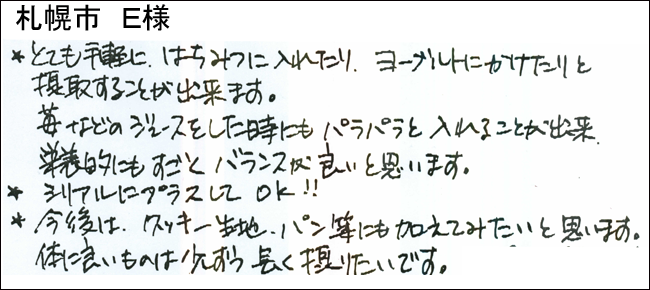 札幌市 E様
*とても手軽に、はちみつに入れたり、ヨーグルトにかけたりと
摂取することが出来ます。
苺などのジュースをした時にもパラパラと入れることが出来、
栄養的にもすごくバランスが良いと思います。
* シリアルにプラスして OK!!
*今後は、クッキー生地、パン等にも加えてみたいと思います。
体に良いものは少しずつ長く摂りたいです。